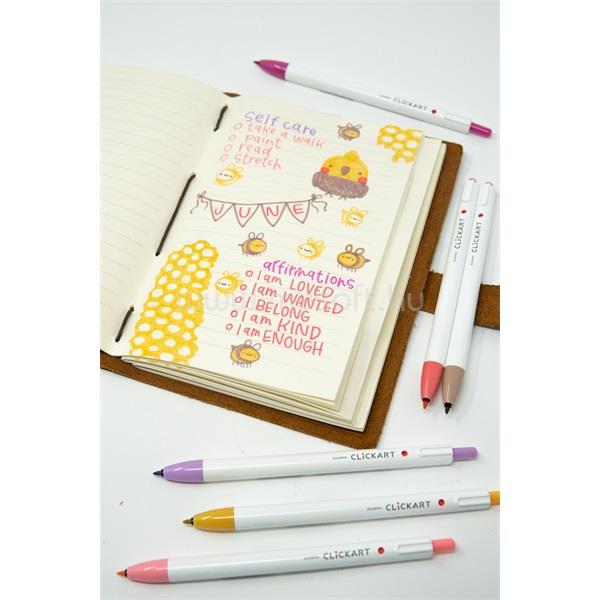 self care
take a walk
paint
read
stretch
JUNE
affirmations
I am LOVED
I am WANTED
I BELONG
I am KIND
I am ENOUGH
ZEBRA CLiCKART
CLiCKART
CLiCKART
ZEBRA CLiCKART
ZEBRA CLiCKART
ZEBRA CLiCKART